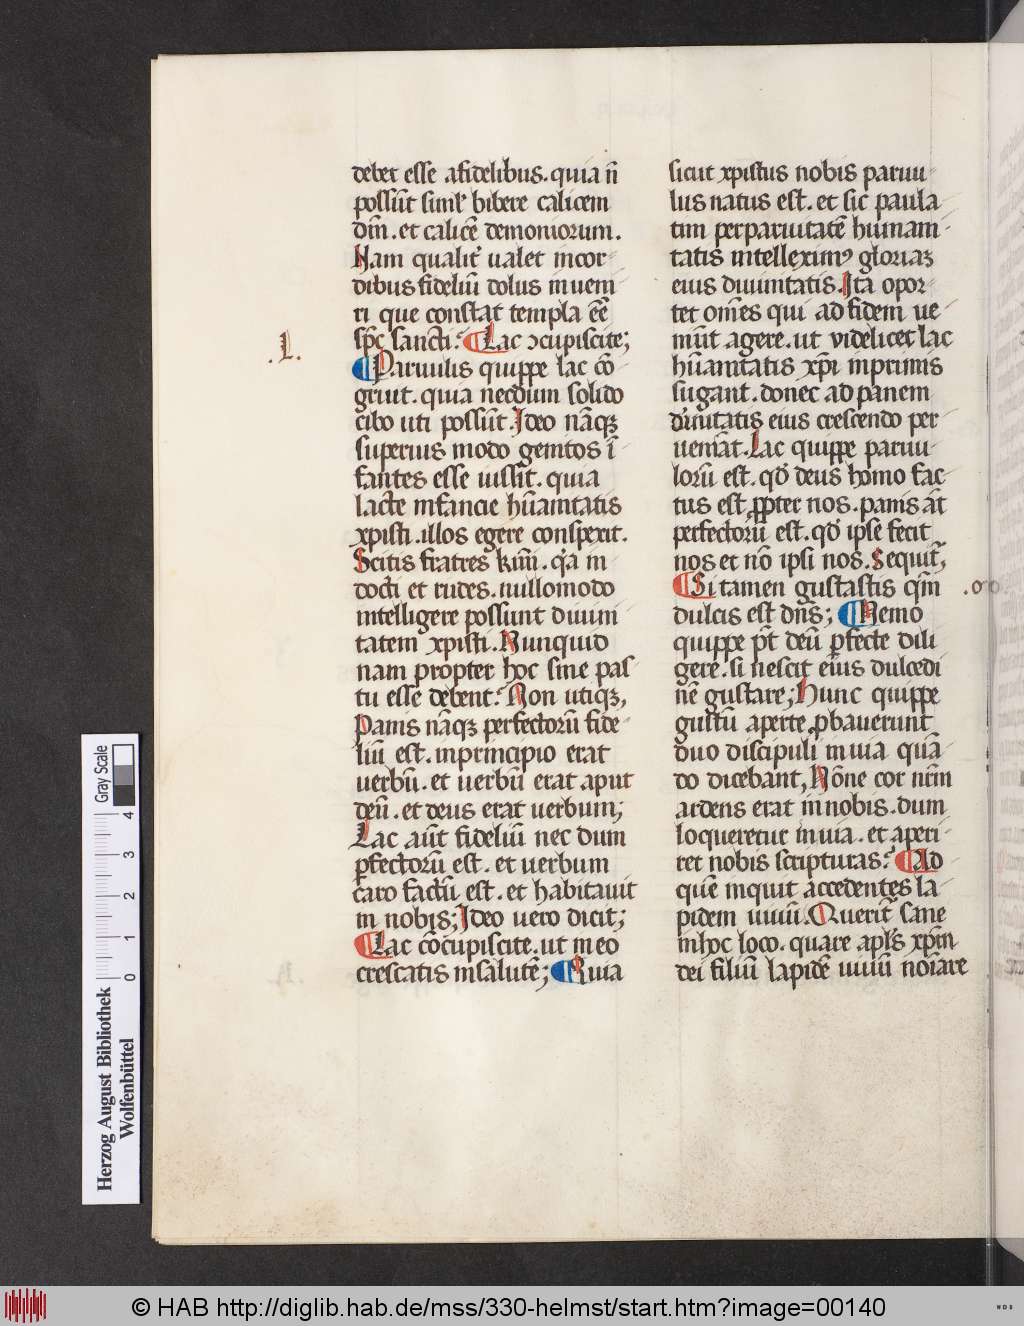 debet esse afidelibus. quia n̄
possūt simł bibere calicem
dm̄. et calicē demoniorum.
Nam qualiť ualet incor-
dibus fideliū dolus inueni-
ri que constat templa ēē
sp̄c sancti. Lac ɔcupiscite;
.L.
Paruulis quippe lac cō-
gruit. quia necdum solido
cibo uti possūt. Ideo nāqꝫ
superius modo genitos ī-
fantes esse iussit. quia
lacte infancie hūanitatis
xpisti. illos egere conspexit.
Scitis fratres km̄i. qa in
docti et rudes. nullomodo
intelligere possunt diuini
tatem xpisti. Nunquid
nam propter hoc sine pas
tu esse debent. Non utiqꝫ,
Panis nāqꝫ perfectorū fide-
liū est. inprincipio erat
uerbū. et uerbū erat aput
deū. et deus erat uerbum;
Lac aūt fideliū nec dum
ꝑfectorū est. et uerbum
caro factū est. et habitauit
in nobis; Ideo uero dicit;
Lac cōcupiscite. ut in eo
crescatis insalutē; Quia
sicut xpistus nobis paruu-
lus natus est. et sic paula
tim perparuitatē humani-
tatis intelleximꝰ gloriaꝫ
eius diuinitatis. Ita opor-
tet om̄es qui ad fidem ue-
niūt agere. ut videlicet lac
hūanitatis xp̄i inprimis
sugant. donec ad panem
diuītatis eius crescendo per
ueniāt. Lac quippe paruu-
lorū est. qď deus homo fac-
tus est ꝓpter nos. panis āt
perfectorū est. qď ipse fecit
nos et nō ipsi nos. Sequiť,
Si tamen gustastis qm̄
dulcis est dn̄s; Nemo
quippe pt̄ deū ꝑfecte dili
gere. si nescit eius dulcedi
nē gustare; Hunc quippe
gustū aperte ꝓbauerunt
duo discipuli inuia quā-
do dicebant, Nōne cor nr̄m
ardens erat in nobis. dum
loqueretur inuia. et aperi-
ret nobis scripturas. Ad
quē inquit accedentes la-
pidem uiuū. Querit̄ sane
inhoc loco. quare apl̄s xp̄m
dei filiū lapidē uiuū noīare
Gray Scale
4
3
2
1
0
Herzog August Bibliothek
Wolfenbüttel
© HAB http://diglib.hab.de/mss/330-helmst/start.htm?image=00140